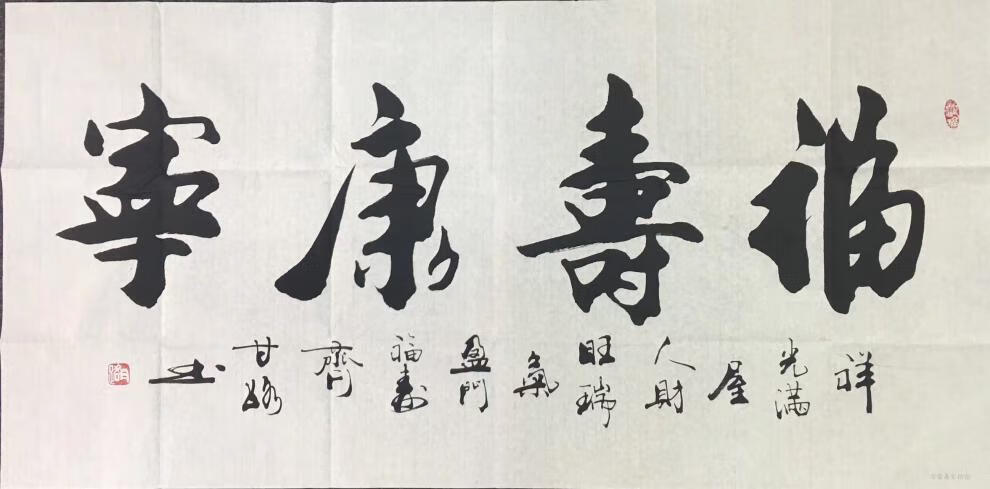 福壽康寧
祥光满屋人財旺瑞氣盈門福壽齊
甘
书